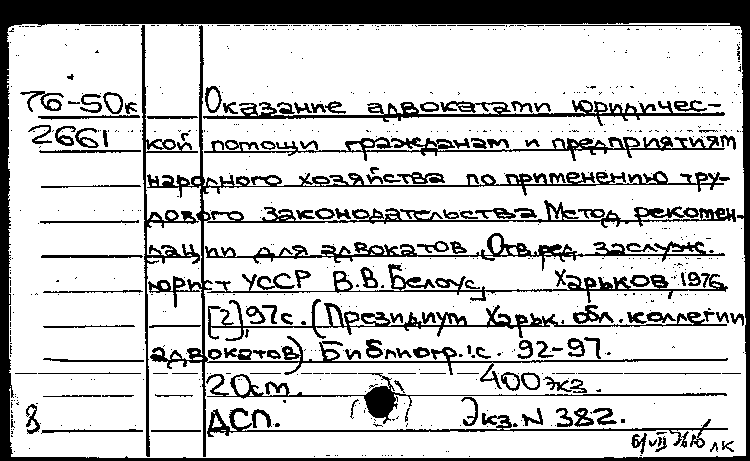 76-50к Оказание адвокатами юридичес-
2661 кой помощи гражданам и предприятиям
народного хозяйства по применению тру-
дового законодательства. Метод. рекомен-
дации для адвокатов. [Отв. ред. заслуж.
юрист УССР В.В. Белоус]. Харьков, 1976.
[2], 97 с. (Президиум Харьк. обл. коллегии
адвокатов). Библиогр. : с. 92-97.
20 ст. 400 экз.
8 ДСП. Экз. N 382.
ЛК